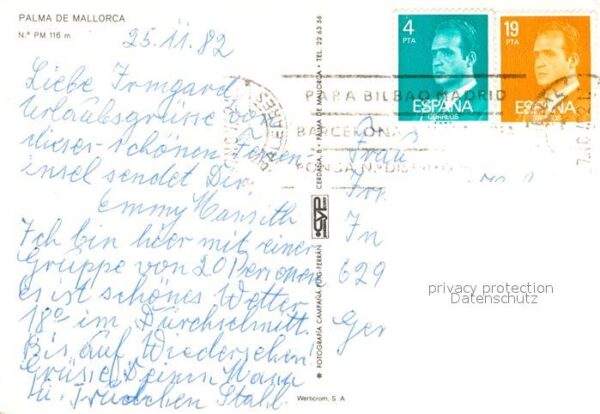 PALMA DE MALLORCA
N.º PM 116 m
25.11.82
Liebe Irmgard
Urlaubsgrüsse von
dieser schönen Ferien-
insel sendet Dir
Emmy
Ich bin hier mit einer
Gruppe von 20 Personen
es ist schönes Wetter
18º im Durchschnitt.
Bis auf Wiedersehen
Grüsse Deinen Mann
u. Trudchen Stahl.
CERDAÑA, 6 - PALMA DE MALLORCA - TEL. 22 63 56
CYP
FOTOGRAFIA CAMPAÑA PUIG-FERRAN
Werticrom, S. A
4
PTA
ESPAÑA
CORREOS
19
PTA
ESPAÑA
CORREOS
PARA BILBAO MADRID
BARCELONA
PONGA N.º DISTRITO
BALEARES
Frau
Irm
In
629
Ger
privacy protection
Datenschutz